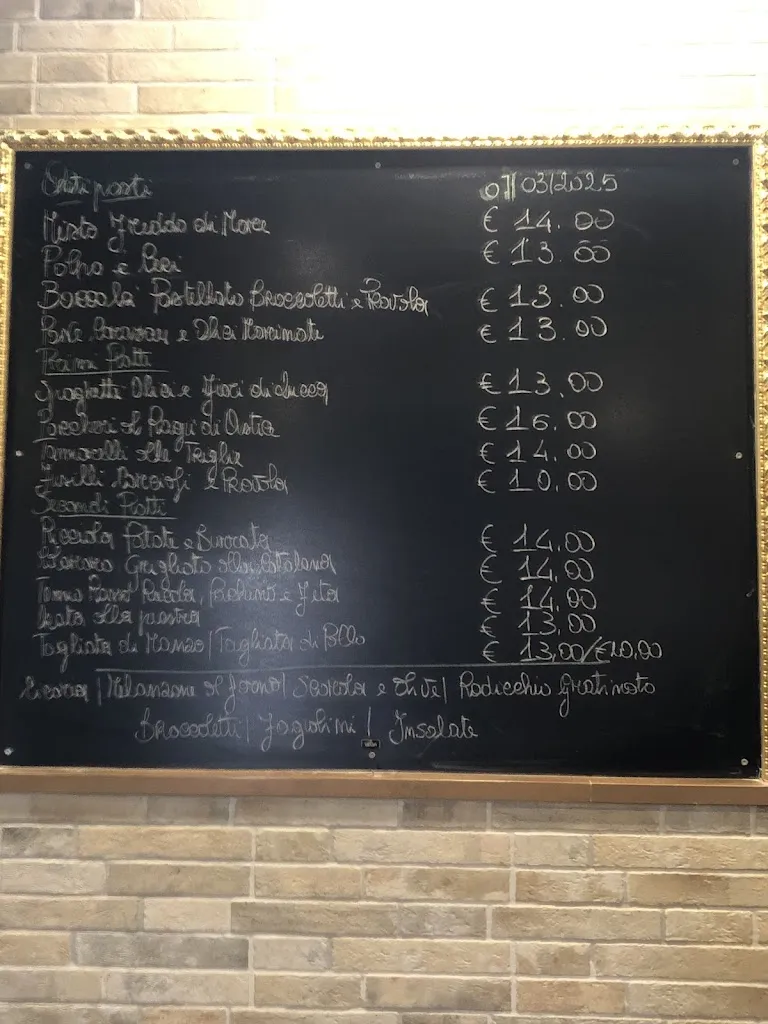 Antipasti 07/03/2025
Misto Freddo di Mare € 14.00
Polpo e Ceci € 13.00
Baccalà Pastellato Broccoletti e Provola € 13.00
Pane e Alici Marinate € 13.00
Primi Piatti
Spaghetti Alici e Fiori di Zucca € 13.00
Paccheri al Ragù di € 16.00
Tonnarelli alle Triglie € 14.00
Fusilli Carciofi e Provola € 10.00
Secondi Piatti
Ricciola Patate e Burrata € 14.00
Grigliato alla Catalana € 14.00
Tonno Rucola, Pachino e Feta € 14.00
alla piastra € 13,00
Tagliata di Manzo / Tagliata di Pollo € 13,00/€10,00
Cicoria | Melanzane al forno | Scarola e Olive | Radicchio Gratinato
Broccoletti | Fagiolini | Insalate